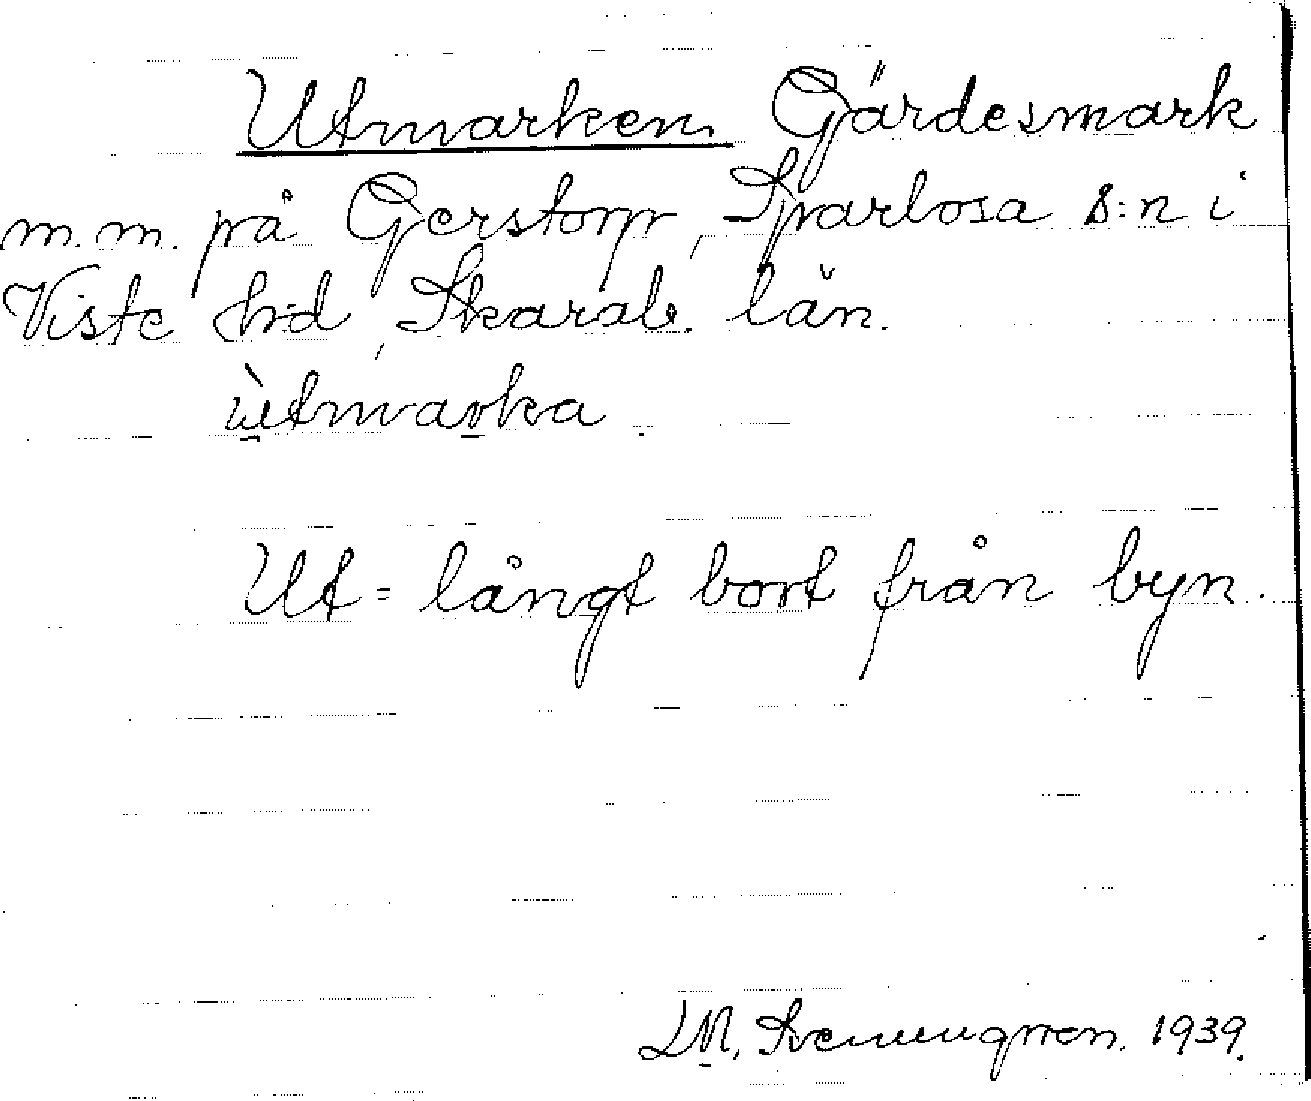 Utmarken Gärdesmark
m.m. på Gerstorp, Sparlösa s:n i
Viste h:d, Skarab. län.
ùtmarka
Ut = långt bort från byn.
1939.